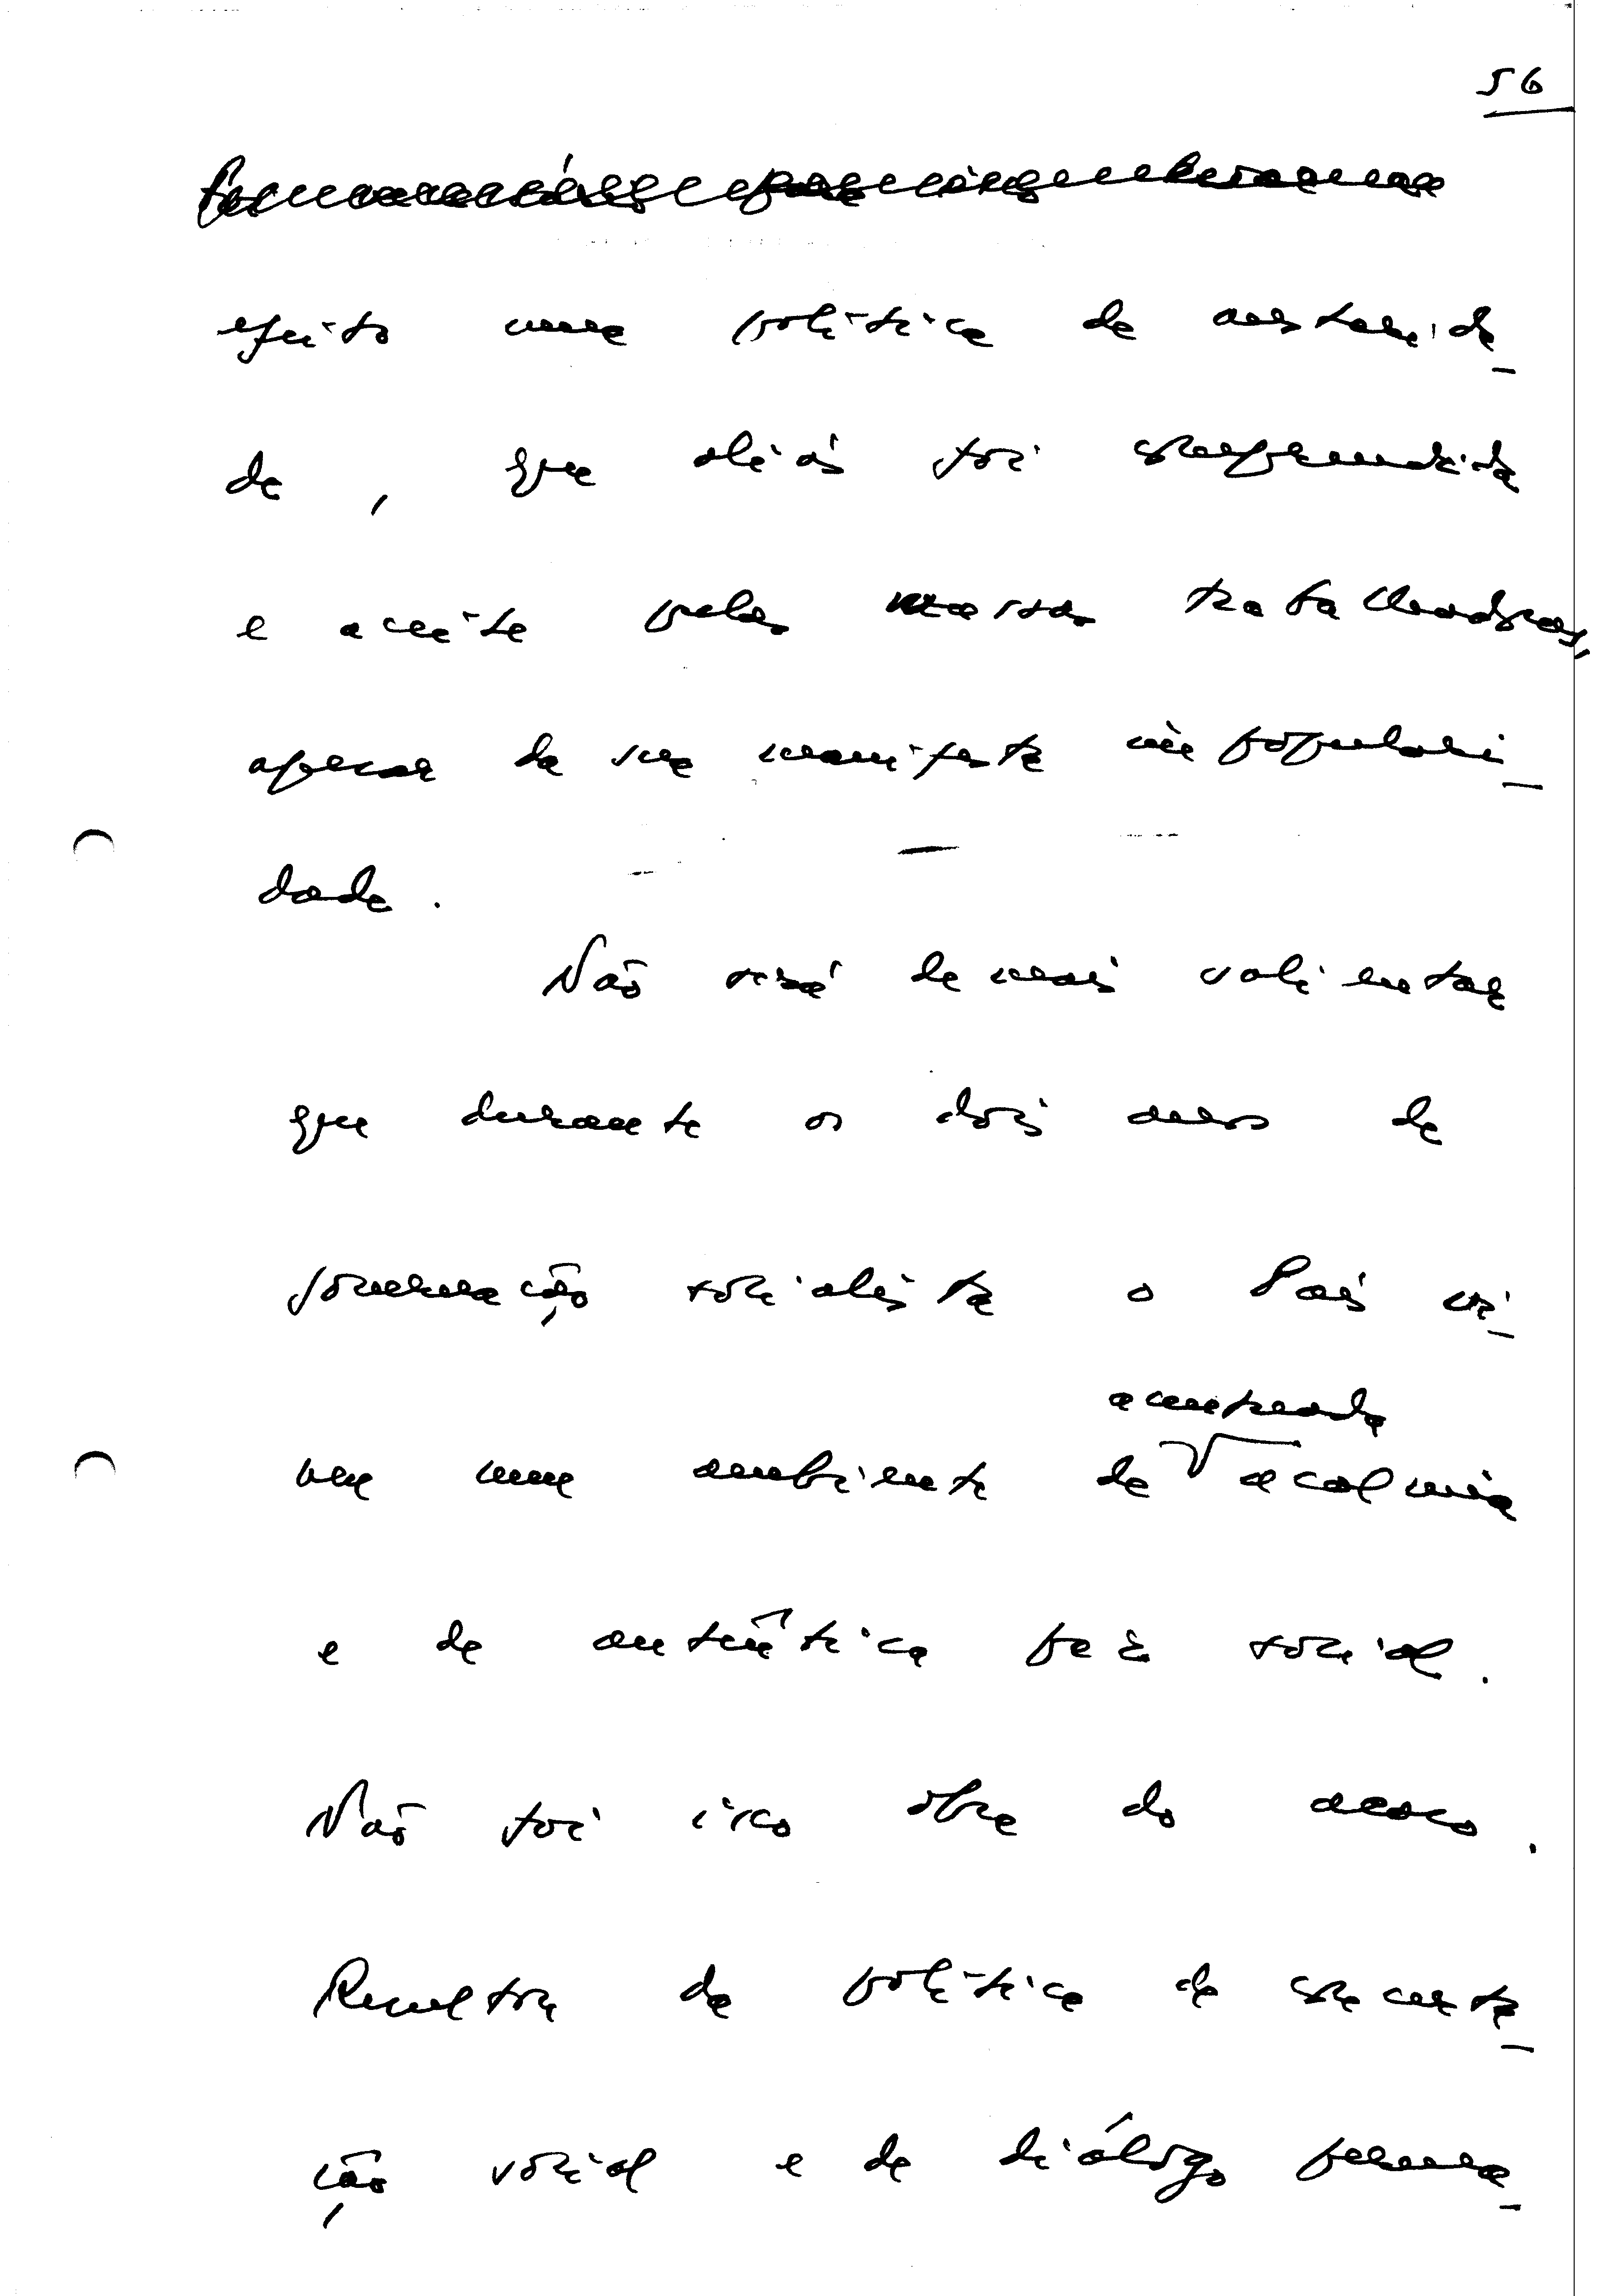 56
efeito uma política de austerida_
de, que aliás foi compreendida
e aceite pelas massas trabalhadoras,
apesar da sua manifesta impopulari_
dade.
Não será demais salientar
que durante os dois anos de
governação socialista o País vi_
acentuada
veu num ambiente de acalmia
e de autêntica paz social.
Não foi isso obra do acaso.
Resultou da política de concerta_
ção social e de diálogo perma_